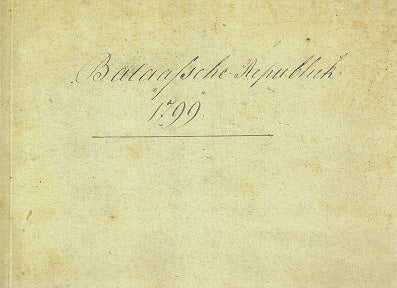 Bataafsche Republiek
1799